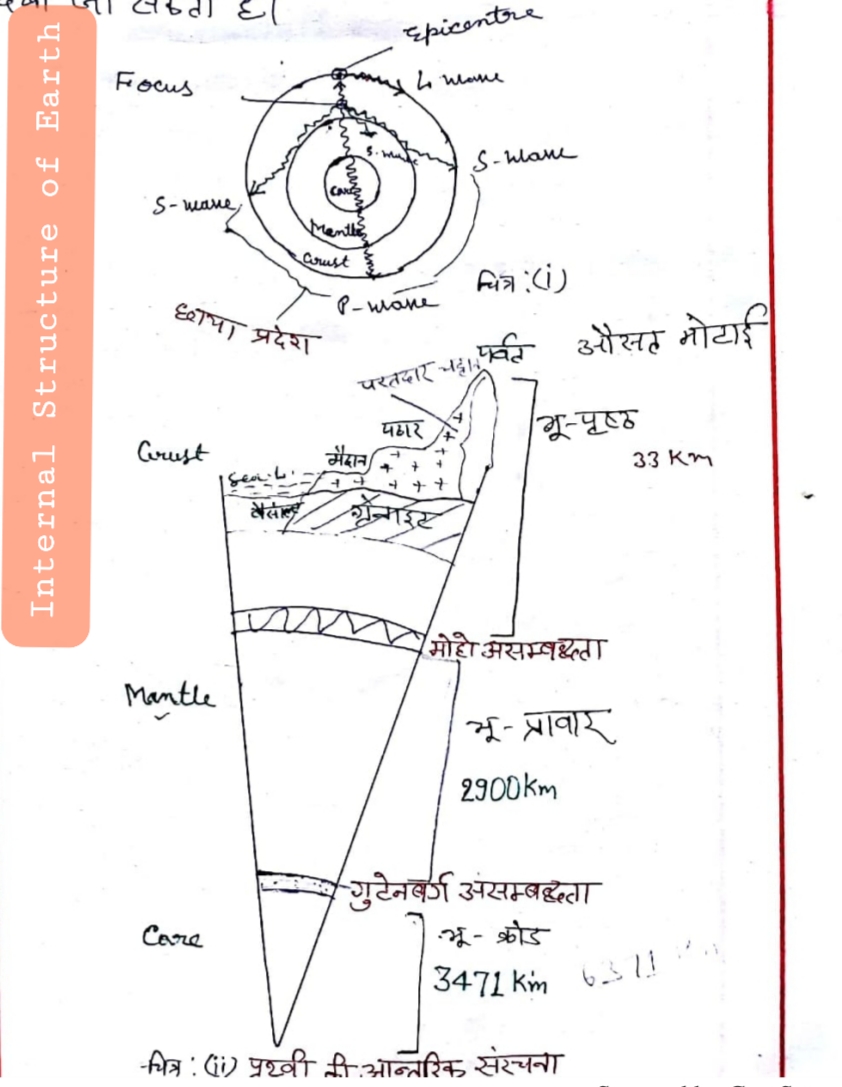 Internal Structure of Earth
Epicentre
Focus
L wave
S-wave
S-wave
S-wave
Core
Mantle
Crust
P-wave
चित्र:(i)
छाया प्रदेश
औसत मोटाई
पर्वत
परतदार चट्टान
पठार
मैदान
भू-पृष्ठ
33 Km
Crust
Sea L.
बैसाल्ट
ग्रेनाइट
मोहो असम्बद्धता
Mantle
भू-प्रावार
2900Km
गुटेनबर्ग असम्बद्धता
Core
भू-क्रोड
3471 Km
6371
चित्र:(ii) पृथ्वी की आन्तरिक संरचना